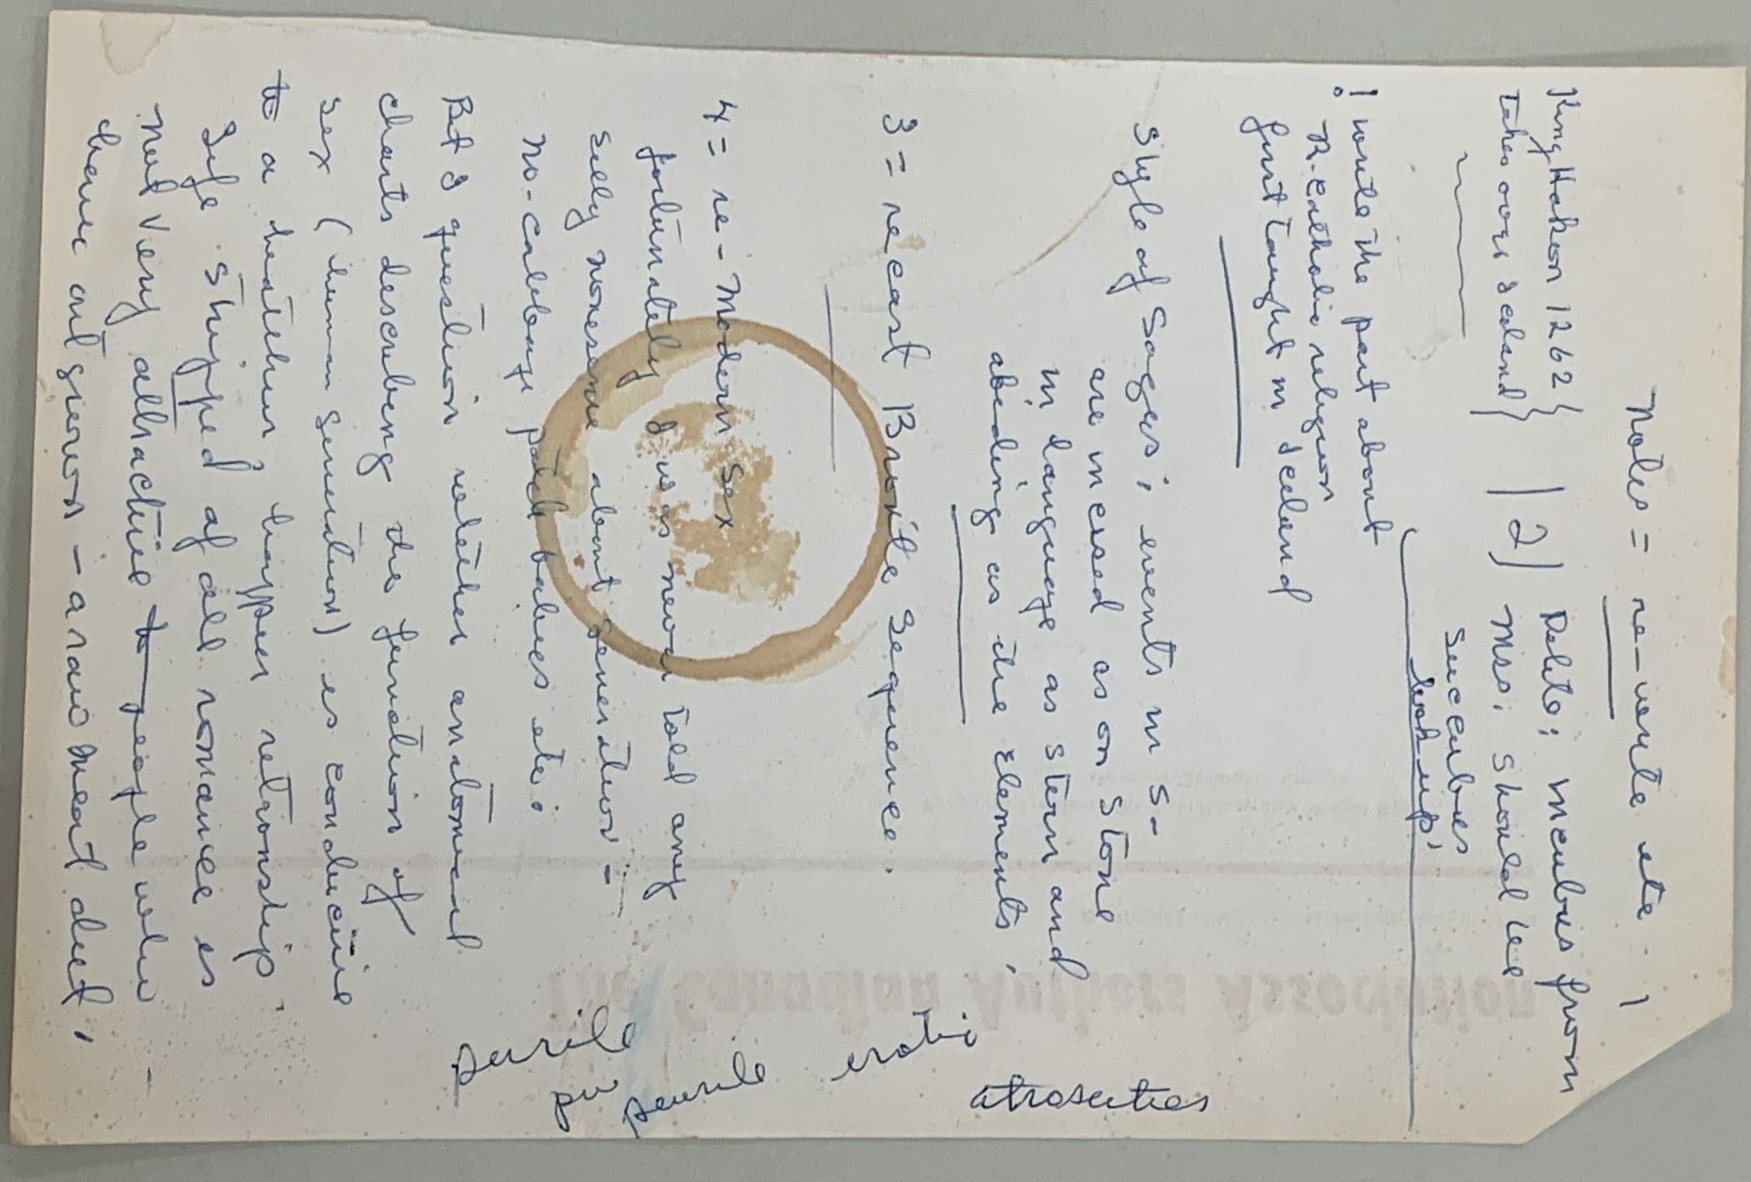 Notes = re-write etc. 1
King Hakon 1262} | 2) Delete; incubus from
Takes over Iceland} Mss; should be
Succubus
look up'
! write the part about
R. Catholic religion
first taught in Iceland
Style of Sagas; events in s-
are incased as on stone
in language as stern and
abiding as the elements,
3 = recast Bronte sequence.
4 = re-Modern sex
fortunately I was never told any
silly nonsense about generation =
no-cabbage patch babies etc:
But I question wether anatomical
charts describing the function of
sex (human generation) is conducive
to a healthier, happier relationship.
Life stripped of all romance is
not very attractive to people who
have outgrown - a raw meat diet,
puerile
pu
puerile erotic
atrosities
The Canadian Authors Association